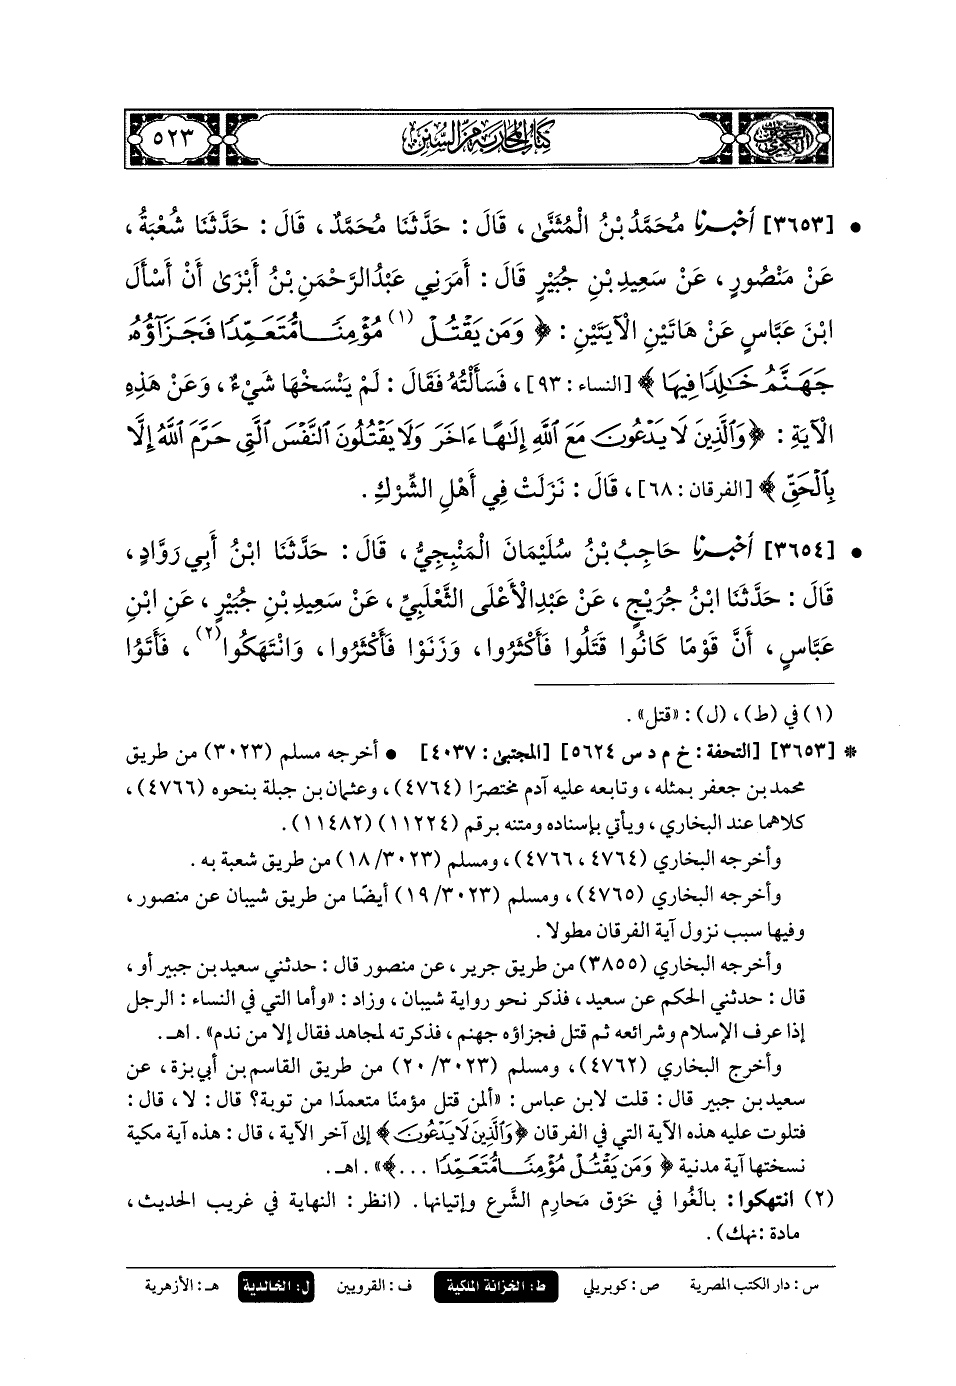 السنن الكبرى
كتاب المحاربة من السنن
٥٢٣
• [٣٦٥٣] أخبرنا مُحَمَّدُ بْنُ الْمُثَنَّى، قَالَ: حَدَّثَنَا مُحَمَّدٌ، قَالَ: حَدَّثَنَا شُعْبَةُ،
عَنْ مَنْصُورٍ، عَنْ سَعِيدِ بْنِ جُبَيْرٍ قَالَ: أَمَرَنِي عَبْدُ الرَّحْمَنِ بْنُ أَبْزَىٰ أَنْ أَسْأَلَ
ابْنَ عَبَّاسٍ عَنْ هَاتَيْنِ الْآيَتَيْنِ: ﴿ وَمَن يَقْتُلْ (١) مُؤْمِنًا مُّتَعَمِّدًا فَجَزَآؤُهُ
جَهَنَّمُ خَٰلِدًا فِيهَا ﴾ [النساء: ٩٣]، فَسَأَلْتُهُ فَقَالَ: لَمْ يَنْسَخْهَا شَيْءٌ، وَعَنْ هَذِهِ
الْآيَةِ: ﴿وَٱلَّذِينَ لَا يَدْعُونَ مَعَ ٱللَّهِ إِلَٰهًا ءَاخَرَ وَلَا يَقْتُلُونَ ٱلنَّفْسَ ٱلَّتِى حَرَّمَ ٱللَّهُ إِلَّا
بِٱلْحَقِّ ﴾ [الفرقان: ٦٨]، قَالَ: نَزَلَتْ فِي أَهْلِ الشِّرْكِ.
• [٣٦٥٤] أخبرنا حَاجِبُ بْنُ سُلَيْمَانَ الْمَنْبِجِيُّ، قَالَ: حَدَّثَنَا ابْنُ أَبِي رَوَّادٍ،
قَالَ: حَدَّثَنَا ابْنُ جُرَيْجٍ، عَنْ عَبْدِ الْأَعْلَى الثَّعْلَبِيِّ، عَنْ سَعِيدِ بْنِ جُبَيْرٍ، عَنِ ابْنِ
عَبَّاسٍ، أَنَّ قَوْمًا كَانُوا قَتَلُوا فَأَكْثَرُوا، وَزَنَوْا فَأَكْثَرُوا، وَانْتَهَكُوا(٢)، فَأَتَوُا
(١) في (ط)، (ل): «قتل».
* [٣٦٥٣] [التحفة: خ م د س ٥٦٢٤] [المجتبى: ٤٠٣٧] • أخرجه مسلم (٣٠٢٣) من طريق
محمد بن جعفر بمثله، وتابعه عليه آدم مختصرًا (٤٧٦٤)، وعثمان بن جبلة بنحوه (٤٧٦٦)،
كلاهما عند البخاري، ويأتي بإسناده ومتنه برقم (١١٢٢٤) (١١٤٨٢).
وأخرجه البخاري (٤٧٦٤، ٤٧٦٦)، ومسلم (١٨/٣٠٢٣) من طريق شعبة به.
وأخرجه البخاري (٤٧٦٥)، ومسلم (١٩/٣٠٢٣) أيضًا من طريق شيبان عن منصور،
وفيها سبب نزول آية الفرقان مطولا.
وأخرجه البخاري (٣٨٥٥) من طريق جرير، عن منصور قال: حدثني سعيد بن جبير أو،
قال: حدثني الحكم عن سعيد، فذكر نحو رواية شيبان، وزاد: «وأما التي في النساء: الرجل
إذا عرف الإسلام وشرائعه ثم قتل فجزاؤه جهنم، فذكرته لمجاهد فقال إلا من ندم». اهـ.
وأخرج البخاري (٤٧٦٢)، ومسلم (٢٠/٣٠٢٣) من طريق القاسم بن أبي بزة، عن
سعيد بن جبير قال: قلت لابن عباس: «ألمن قتل مؤمنًا متعمدًا من توبة؟ قال: لا، قال:
فتلوت عليه هذه الآية التي في الفرقان ﴿وَٱلَّذِينَ لَا يَدْعُونَ﴾ إلى آخر الآية، قال: هذه آية مكية
نسختها آية مدنية ﴿ وَمَن يَقْتُلْ مُؤْمِنًا مُّتَعَمِّدًا ...﴾». اهـ.
(٢) انتهكوا: بالَغُوا في خَرْق مَحارِم الشَّرع وإتيانها. (انظر: النهاية في غريب الحديث،
مادة: نهك).
س: دار الكتب المصرية ص: كوبريلي ط: الخزانة الملكية ف: القرويين ل: الخالدية هـ: الأزهرية